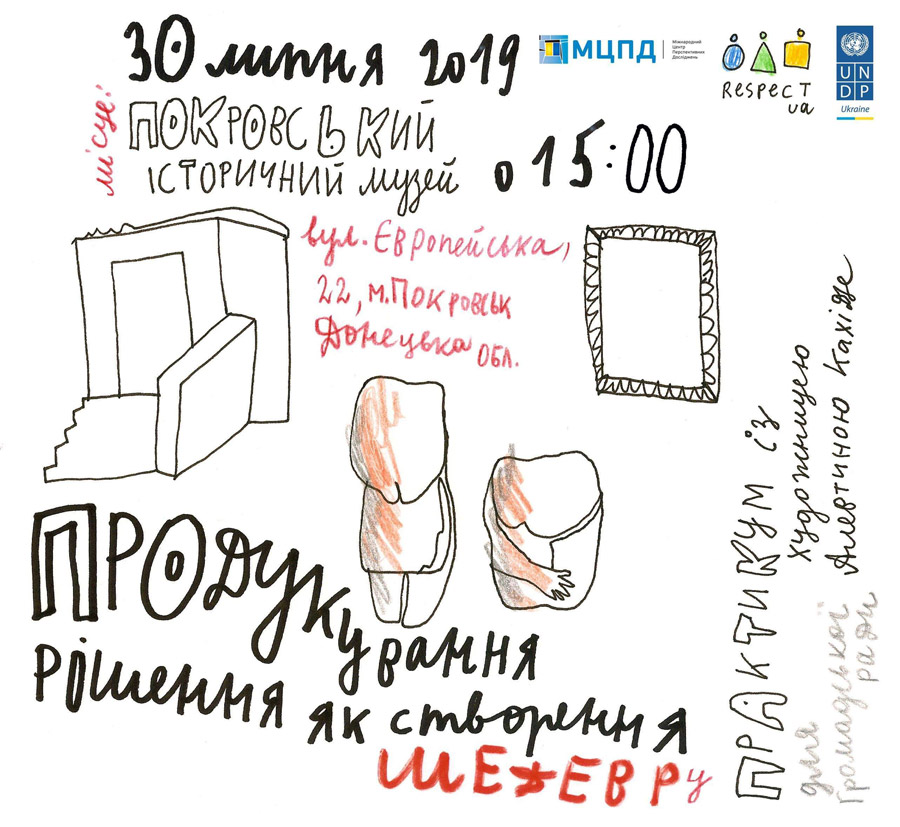 30 липня 2019
місце:
ПОКРОВСЬКИЙ
ІСТОРИЧНИЙ музей
о 15:00
МЦПД
Міжнародний
Центр
Перспективних
Досліджень
RESPECT
ua
UN
DP
Ukraine
вул. Європейська,
22, м. Покровськ
Донецька обл.
Продукування
рішення як створення
ШЕЖЕВРу
ПРАКТИКУМ із
художницею
Алевтиною Кахідзе
для
Громадської
ради